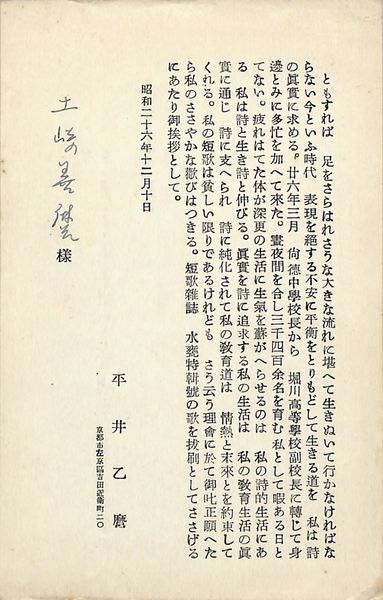 ともすれば　足をさらはれさうな大きな流れに堪へて生きぬいて行かなければな
らない今といふ時代　表現を絶する不安に平衡をとりもどして生きる道を　私は詩
の眞實に求める。廿六年三月　尙德中學校長から　堀川高等學校副校長に轉じて身
邊とみに多忙を加へて來た。晝夜間を合し三千四百余名を育む私として暇ある日と
てない。疲れはてた体が深更の生活に生氣を蘇がへらせるのは　私の詩的生活にあ
る　私は詩と生き詩と伸びる。眞實を詩に追求する私の生活は　私の敎育生活の眞
實に通じ　詩に支へられ　詩に純化されて私の敎育道は　情熱と未來とを約束して
くれる。私の短歌は貧しい限りであるけれども　さう云う理會に於て御叱正願へた
ら私のささやかな歡びはつきる。短歌雜誌　水甕特輯號の歌を拔刷としてささげる
にあたり御挨拶として。
昭和二十六年十二月十日
平井乙麿
京都市左京區吉田近衞町二〇
土岐善麿様